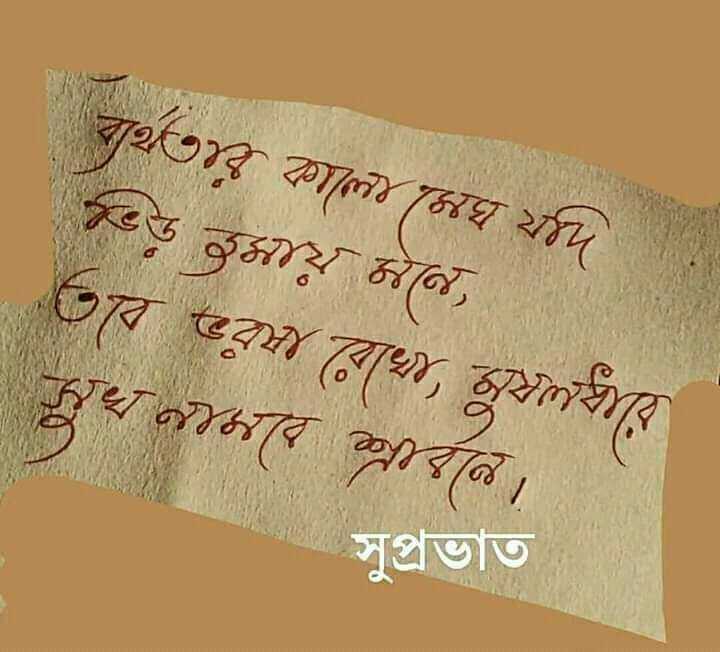 ব্যর্থতার কালো মেঘ যদি
ভিড় জমায় মনে,
তবে ভরসা রেখো, মুষলধারে
সুখ নামবে শ্রাবনে।
সুপ্রভাত